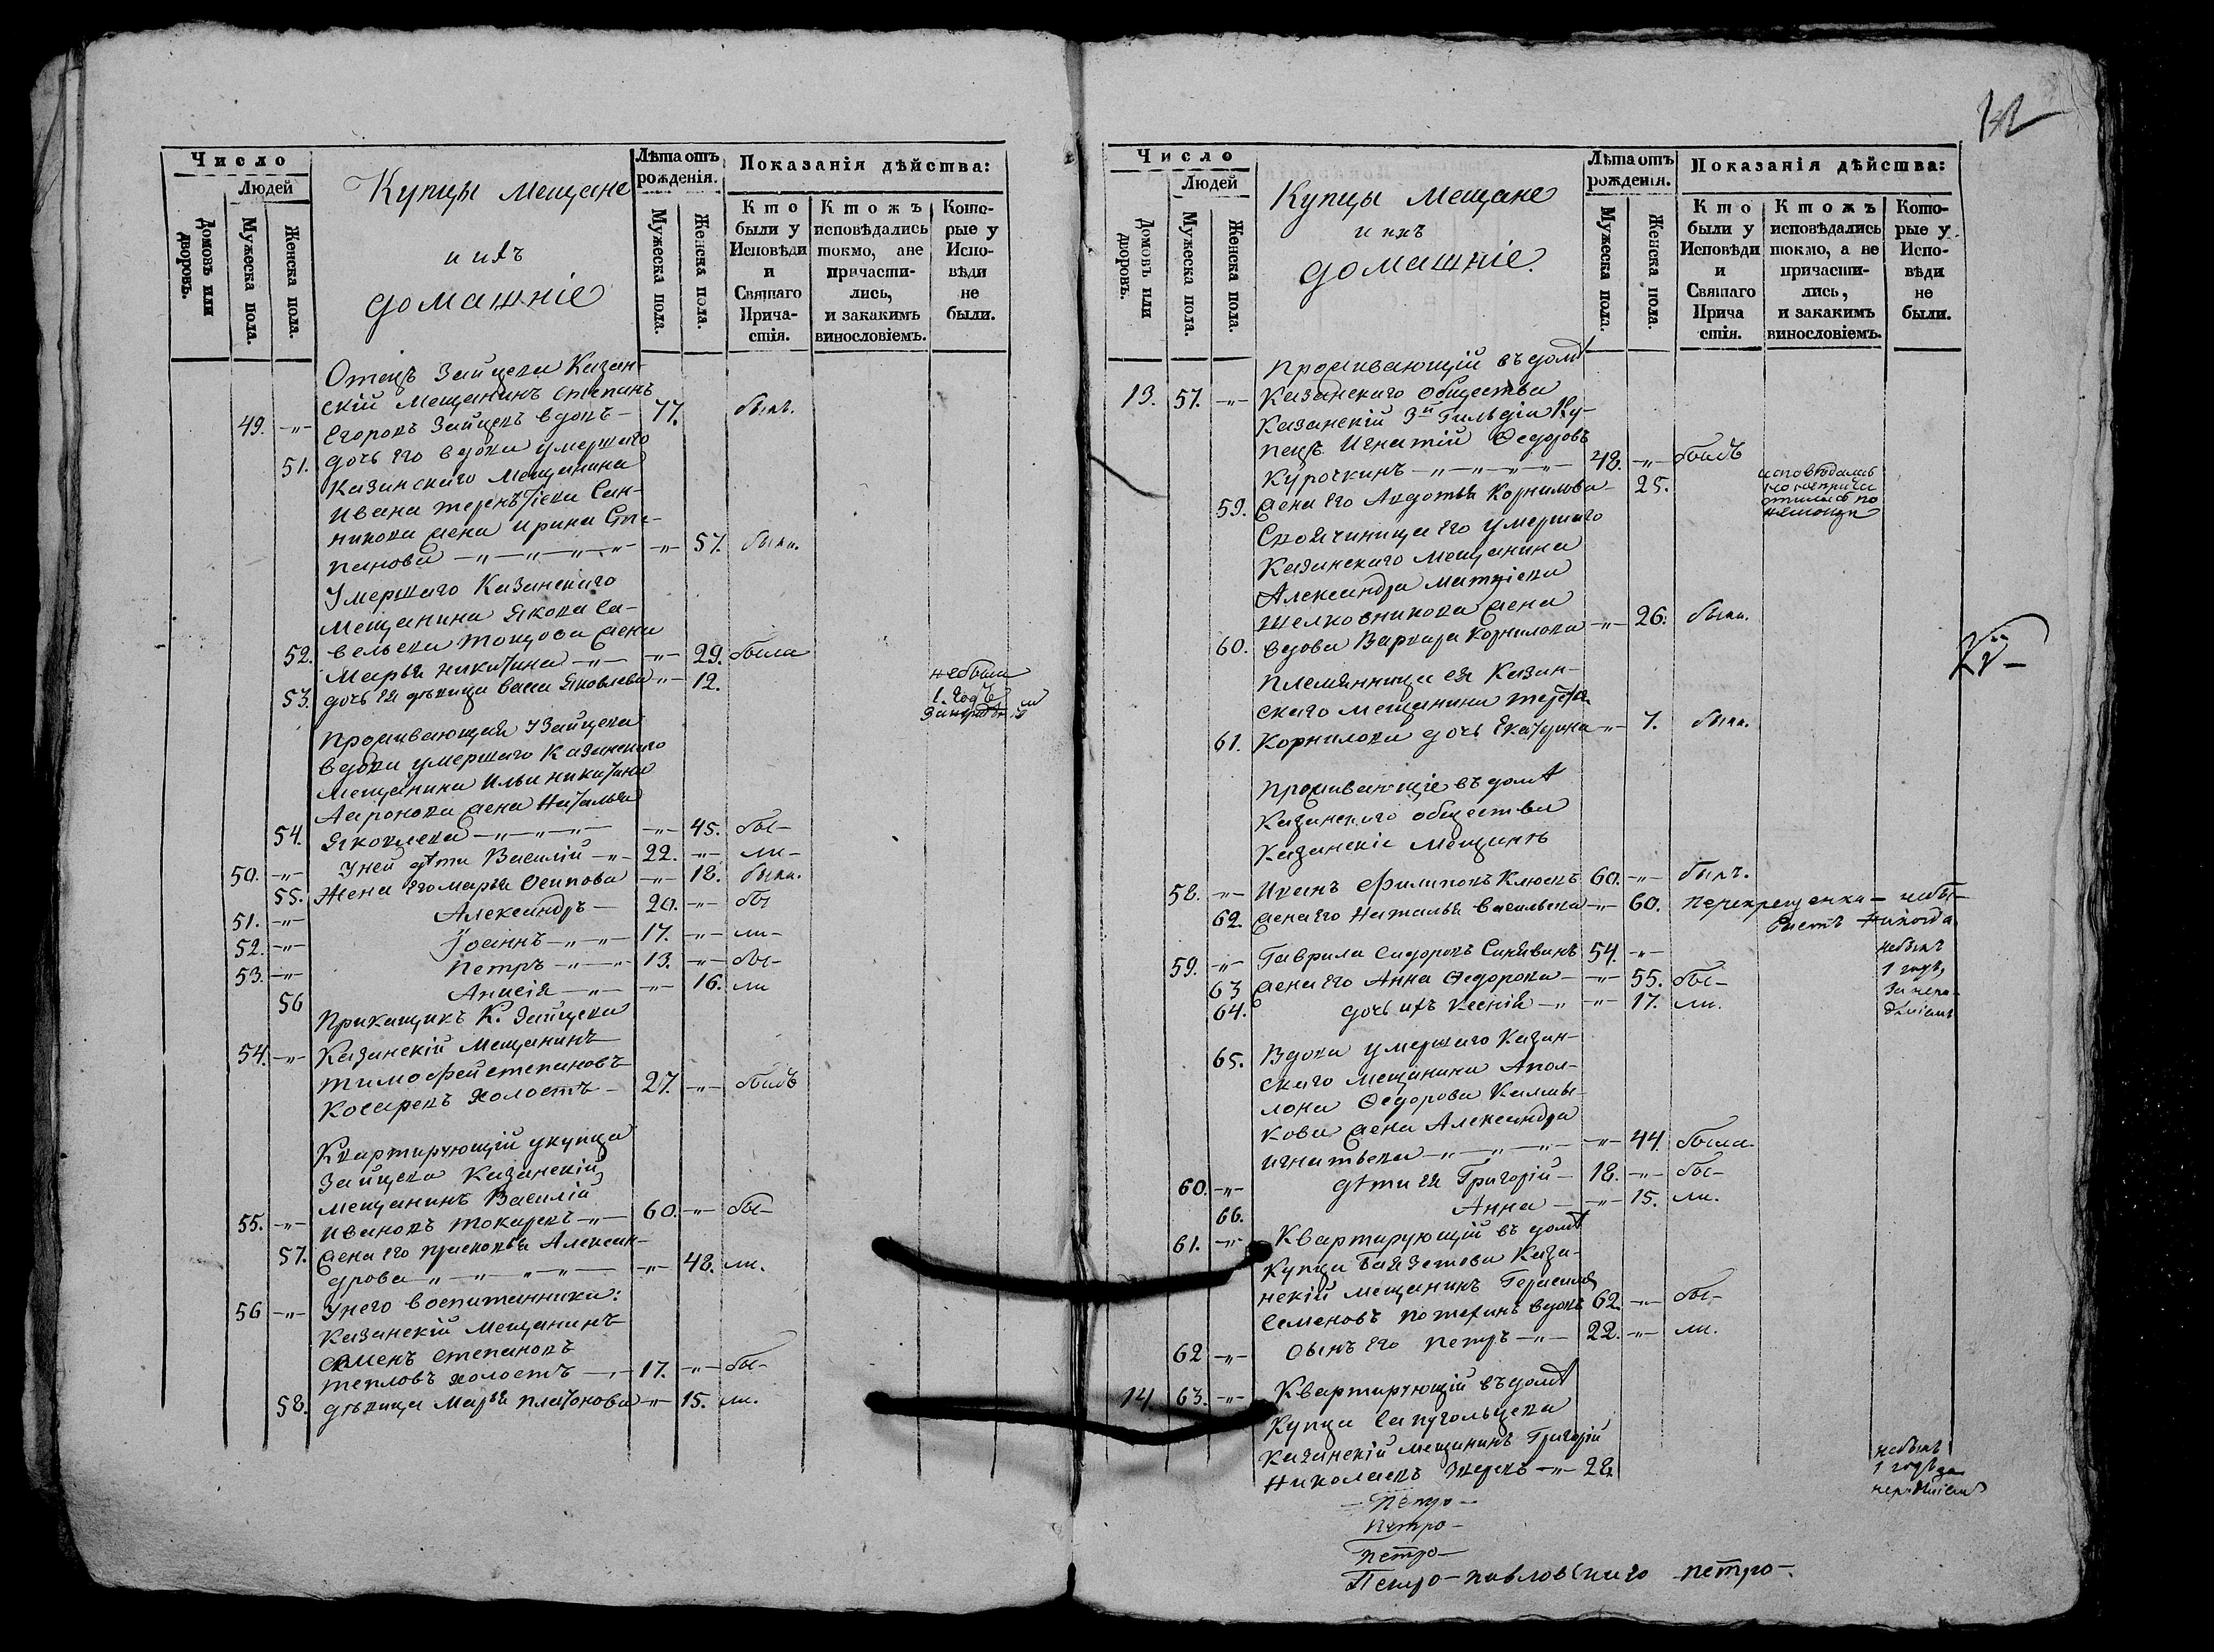 Число
Людей
Домовъ или дворовъ.
Мужеска пола.
Женска пола.
Купцы Мещане
и ихъ
домашніе
Лѣта отъ рожденія.
Мужеска пола.
Женска пола.
Показанія дѣйства:
Кто были у Исповѣди и Святаго Причастія.
Ктожъ исповѣдались токмо, а не причастились, и за какимъ винословіемъ.
Которые у Исповѣди не были.
Отецъ Зайцева Казан-
скій Мещанинъ Степанъ
49. -"- Егоровъ Зайцевъ вдовъ - 77. былъ.
51. дочь его вдова умершаго
Казанскаго Мещанина
Ивана Терентіева Сан-
никова жена Ирина Сте-
панова -"-"-"-"- -"- 57. была.
Умершаго Казанскаго
Мещанина Якова Са-
вельева жена
52. Марья Никитина -"- -"- 29. была
53. дочь ея дѣвица Яковлева -"- 12. небыла
1. годъ
Проживающая у Зайцева
вдова умершаго Казанскаго
Мещанина Ильи Никитина
Ларіонова жена Наталья
54. Яковлева -"-"-"- -"- 45. бы-
50. -"- У ней дѣти Василій -"- 22. -"- ли-
55. Жена его Марья Осипова -"- 18. была.
51. -"- Александръ - 20. -"- бы
52. -"- Іоаннъ -"-"- 17. -"- ли-
53. -"- Петръ -"-"- 13. -"- бы-
56 Анисія -"- -"- 16. ли
Прикащикъ К. Зайцева
54. -"- Казанскій Мещанинъ
Тимофей Степановъ
Косаревъ холостъ - 27. -"- былъ
Квартирующій у купца
Зайцева Казанскій
мещанинъ Василій
55. -"- Ивановъ Токаревъ -"- 60. -"- бы-
57. жена его Прасковья Алексан-
дрова -"-"-"-"- -"- 48. ли.
56 -"- У него воспитанники:
Казанскій Мещанинъ
Семенъ Степановъ
Тепловъ холостъ -"- 17. -"- бы-
58. дѣвица Марья Платонова -"- 15. ли.
Число
Людей
Домовъ или дворовъ.
Мужеска пола.
Женска пола.
Купцы Мещане
и ихъ
домашніе.
Лѣта отъ рожденія.
Мужеска пола.
Женска пола.
Показанія дѣйства:
Кто были у Исповѣди и Святаго Прича стія.
Ктожъ исповѣдались токмо, а не причастились, и за какимъ винословіемъ.
Которые у Исповѣди не были.
Проживающій въ домѣ
13. 57. -"- Казанскаго Общества
Казанскій 3й Гильдіи Ку-
пецъ Игнатій Федоровъ
Курочкинъ -"-"-"-"- 48. -"- былъ
59. жена его Авдотья Корнилова - 25. исповѣдалась
но неприча
стилась по
немощи
Своячиница его умершаго
Казанскаго Мещанина
Александра Матвѣева
Шелковникова жена
60. вдова Варвара Корнилова -"- 26. была.
Племянница ея Казан-
скаго мещанина
61. Корнилова дочь Екатерина -"- 7. была.
Проживающіе въ домѣ
Казанскаго общества
Казанскіе Мещане
58. -"- Иванъ Филиповъ Клюевъ 60. -"- былъ.
62. жена его Наталья Васильева -"- 60. перекрещенка - небы-
ваетъ никогда.
59. -"- Гаврила Сидоровъ Синявинъ 54. -"- небылъ
1 годъ,
за нера-
дѣніемъ
63 жена его Анна Федорова - -"- 55. бы-
64. дочь ихъ Ксенія -"- -"- 17. ли.
65. Вдова умершаго Казан-
скаго мещанина Апол-
лона Федорова Калмы-
кова жена Александра
Игнатьева -"-"-"- -"- 44. была.
60. -"- дѣти ея Григорій - 18. -"- бы-
66. Анна - -"- 15. ли.
61. -"- Квартирующій въ домѣ
Купца Каза-
нскій мещанинъ Герасимъ
Семеновъ Потехинъ вдовъ 62. -"- бы-
62 -"- Сынъ его Петръ -"- 22. -"- ли.
14 63. -"- Квартирующій въ домѣ
Купца Сапугольцева
Казанскій мещанинъ Григорій
Николаевъ -"- 28. небылъ
1 годъ за
нерадѣніемъ
- Петро -
Петро -
Петро -
Петро-павловскаго Петро-.